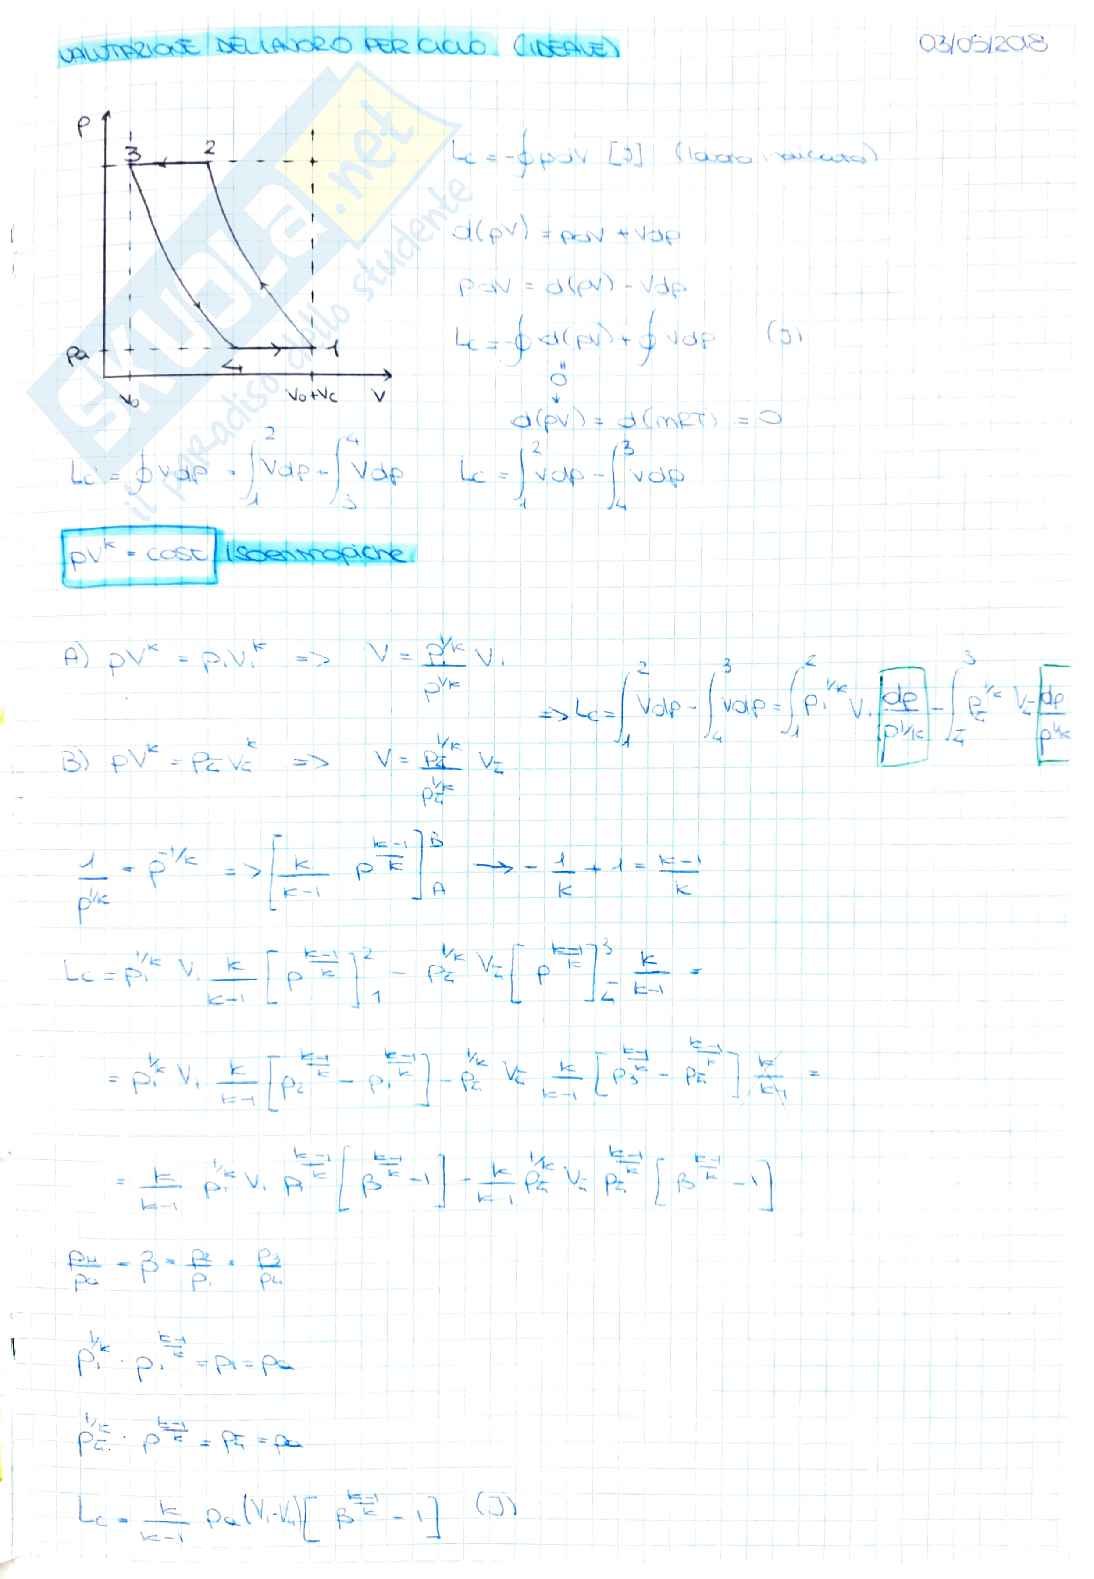 VALUTAZIONE DEL LAVORO PER CICLO (IDEALE)
03/05/2018
p
3 2
pa
4
1
V₀ V₀+Vc V
SKUOLA.net
il paradiso dello studente
Lc = -∮ p dV [J] (lavoro
d(pV) = pdV + Vdp
pdV = d(pV) - Vdp
Lc = -∮ d(pV) + ∮ Vdp (J)
0
d(pV) = d(mRT) = 0
Lc = ∮ Vdp = ∫₁² Vdp + ∫₃⁴ Vdp
Lc = ∫₁² Vdp - ∫₄³ Vdp
pV^k = cost Isoentropiche
A) pV^k = p₁V₁^k => V = p₁^(1/k) / p^(1/k) V₁
=> Lc = ∫₁² Vdp - ∫₄³ Vdp = ∫₁² p₁^(1/k) V₁ dp/p^(1/k) - ∫₄³ p₄^(1/k) V₄ dp/p^(1/k)
B) pV^k = p₄V₄^k => V = p₄^(1/k) / p₄^(1/k) V₄
1/p^(1/k) = p^(-1/k) => [k/(k-1) p^((k-1)/k)]_A^B → -1/k + 1 = (k-1)/k
Lc = p₁^(1/k) V₁ k/(k-1) [p^((k-1)/k)]₁² - p₄^(1/k) V₄ [p^((k-1)/k)]₄³ k/(k-1) =
= p₁^(1/k) V₁ k/(k-1) [p₂^((k-1)/k) - p₁^((k-1)/k)] - p₄^(1/k) V₄ k/(k-1) [p₃^((k-1)/k) - p₄^((k-1)/k)] k/(k-1) =
= k/(k-1) p₁^(1/k) V₁ p₁^((k-1)/k) [β^((k-1)/k) - 1] - k/(k-1) p₄^(1/k) V₄ p₄^((k-1)/k) [β^((k-1)/k) - 1]
/pa = β = p₂/p₁ = p₃/p₄
p₁^(1/k) · p₁^((k-1)/k) = p₁ = pa
p₄^(1/k) · p^((k-1)/k) = p₄ = pa
Lc = k/(k-1) pa (V₁-V₄) [β^((k-1)/k) - 1] (J)